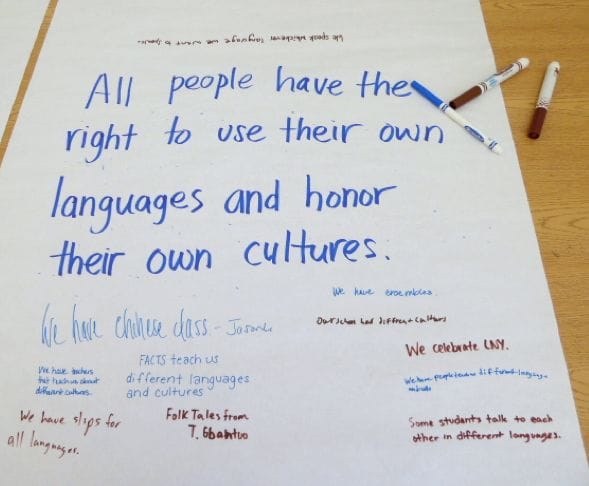 We speak whichever language we want to speak.
All people have the
right to use their own
languages and honor
their own cultures.
We have ensembles.
We have chinese class. -
Our school has different cultures
We celebrate LNY.
We have teachers
that teach us about
different cultures.
FACTS teach us
different languages
and cultures
We have people teach us different languages
We have slips for
all languages.
Folk Tales from
T. Gbantuo
Some students talk to each
other in different languages.